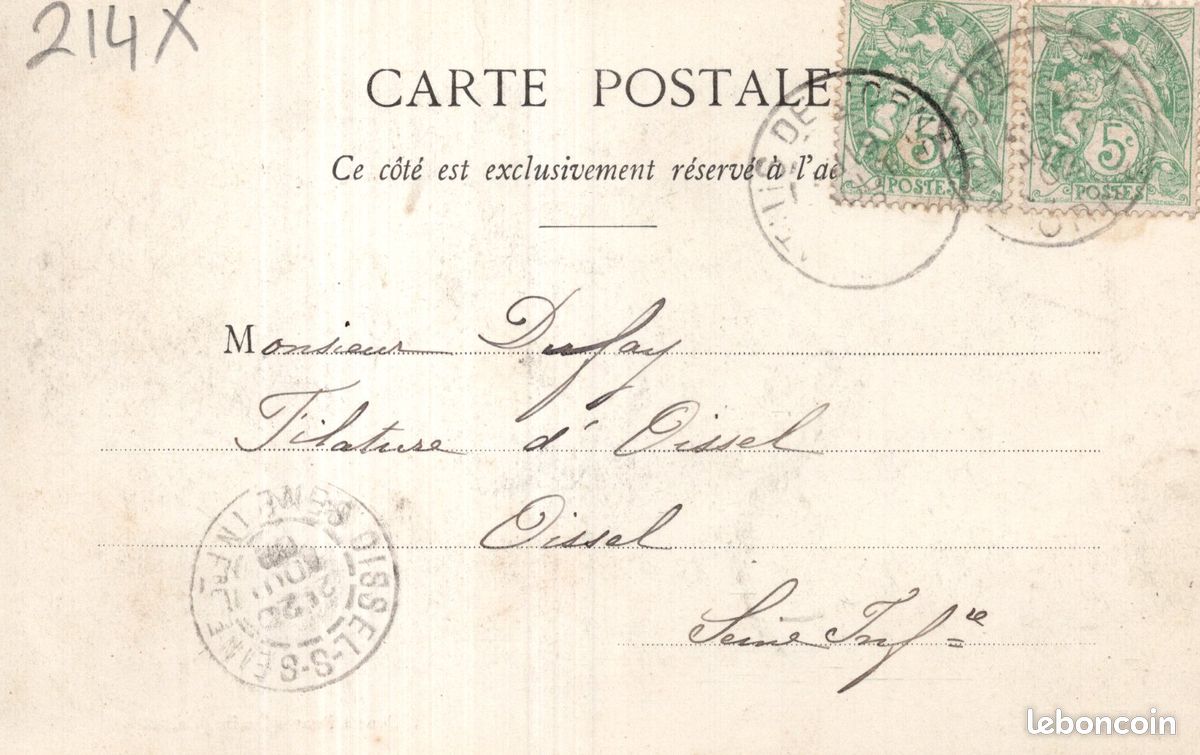 214X
CARTE POSTALE
Ce côté est exclusivement réservé à l'ad
5c 5c
POSTES POSTES
Monsieur Dufay
Filature d'Oissel
Oissel
Seine Infre
OISSEL-S-SEINE
SEINE INFRE
leboncoin